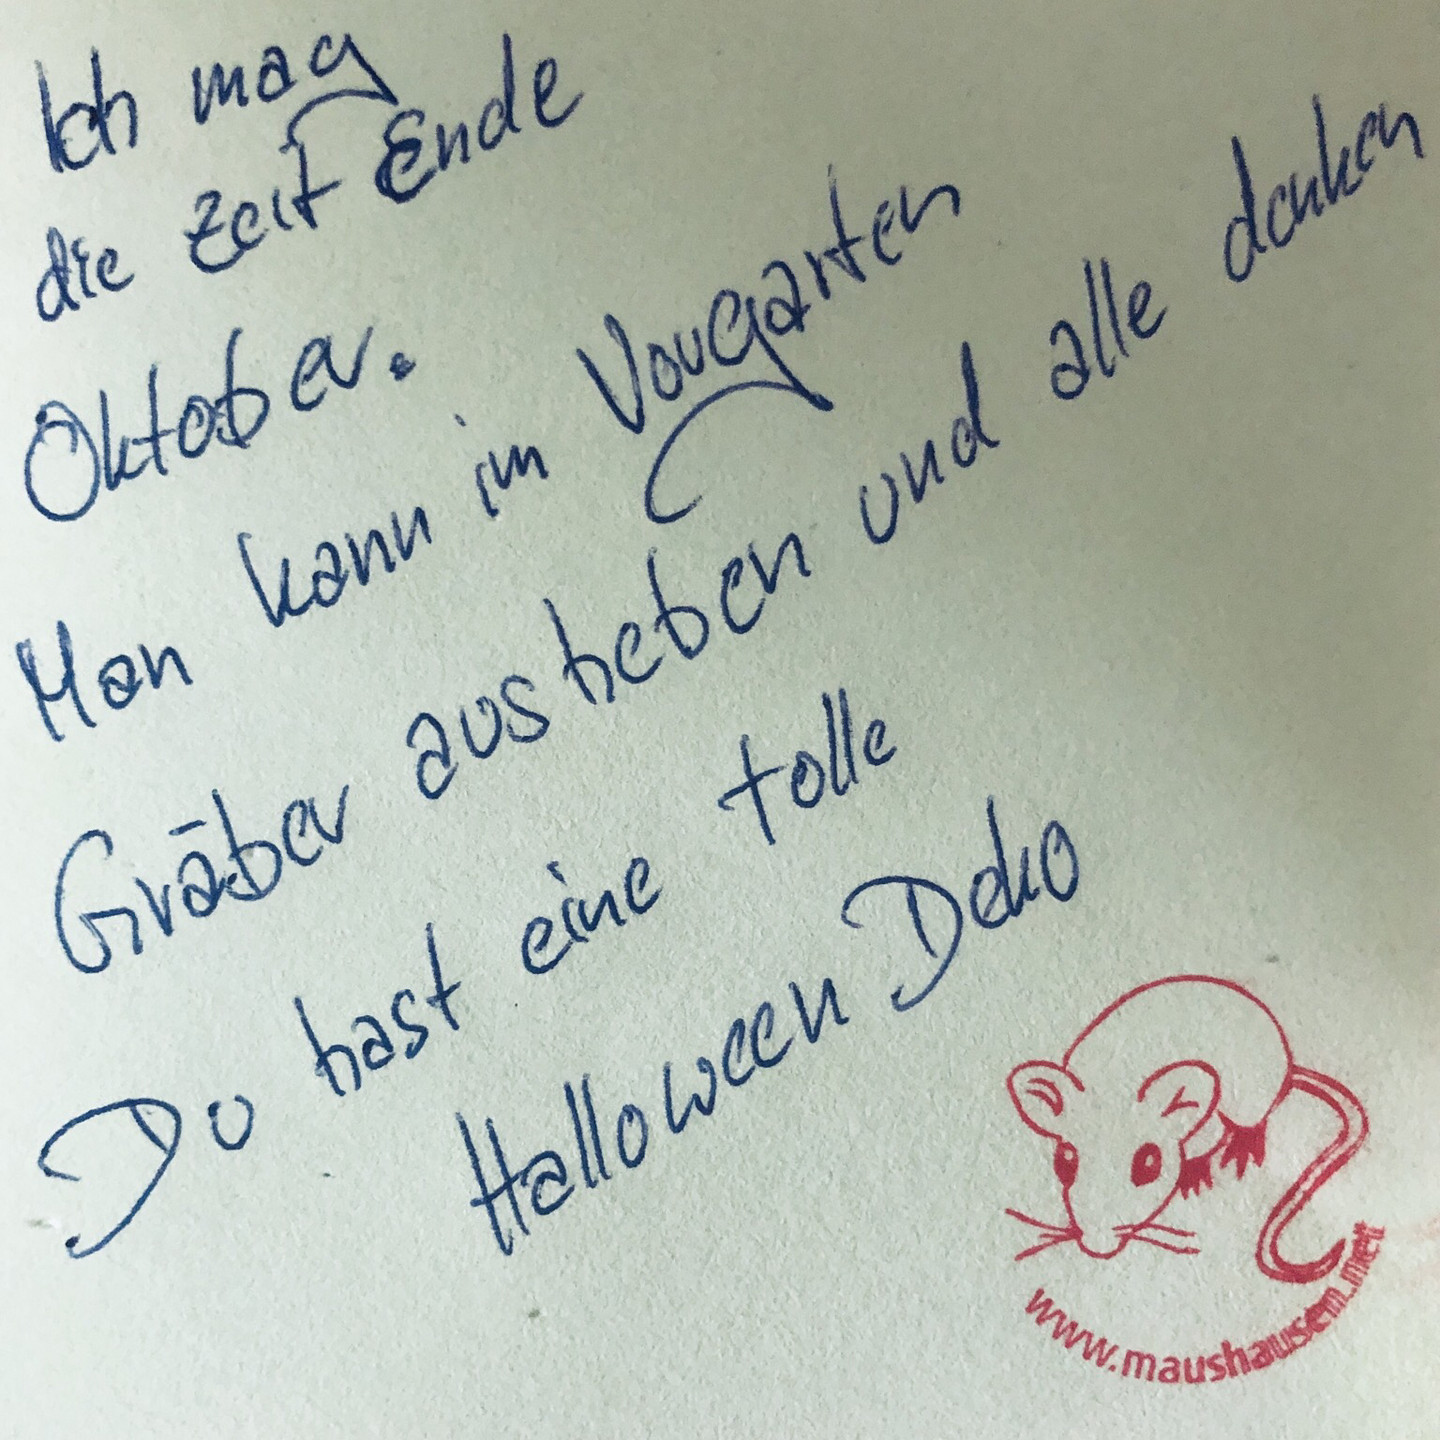 Ich mag
die Zeit Ende
Oktober.
Man kann im Vorgarten
Gräber ausheben und alle denken
Du hast eine tolle
Halloween Deko
www.maushausem.net